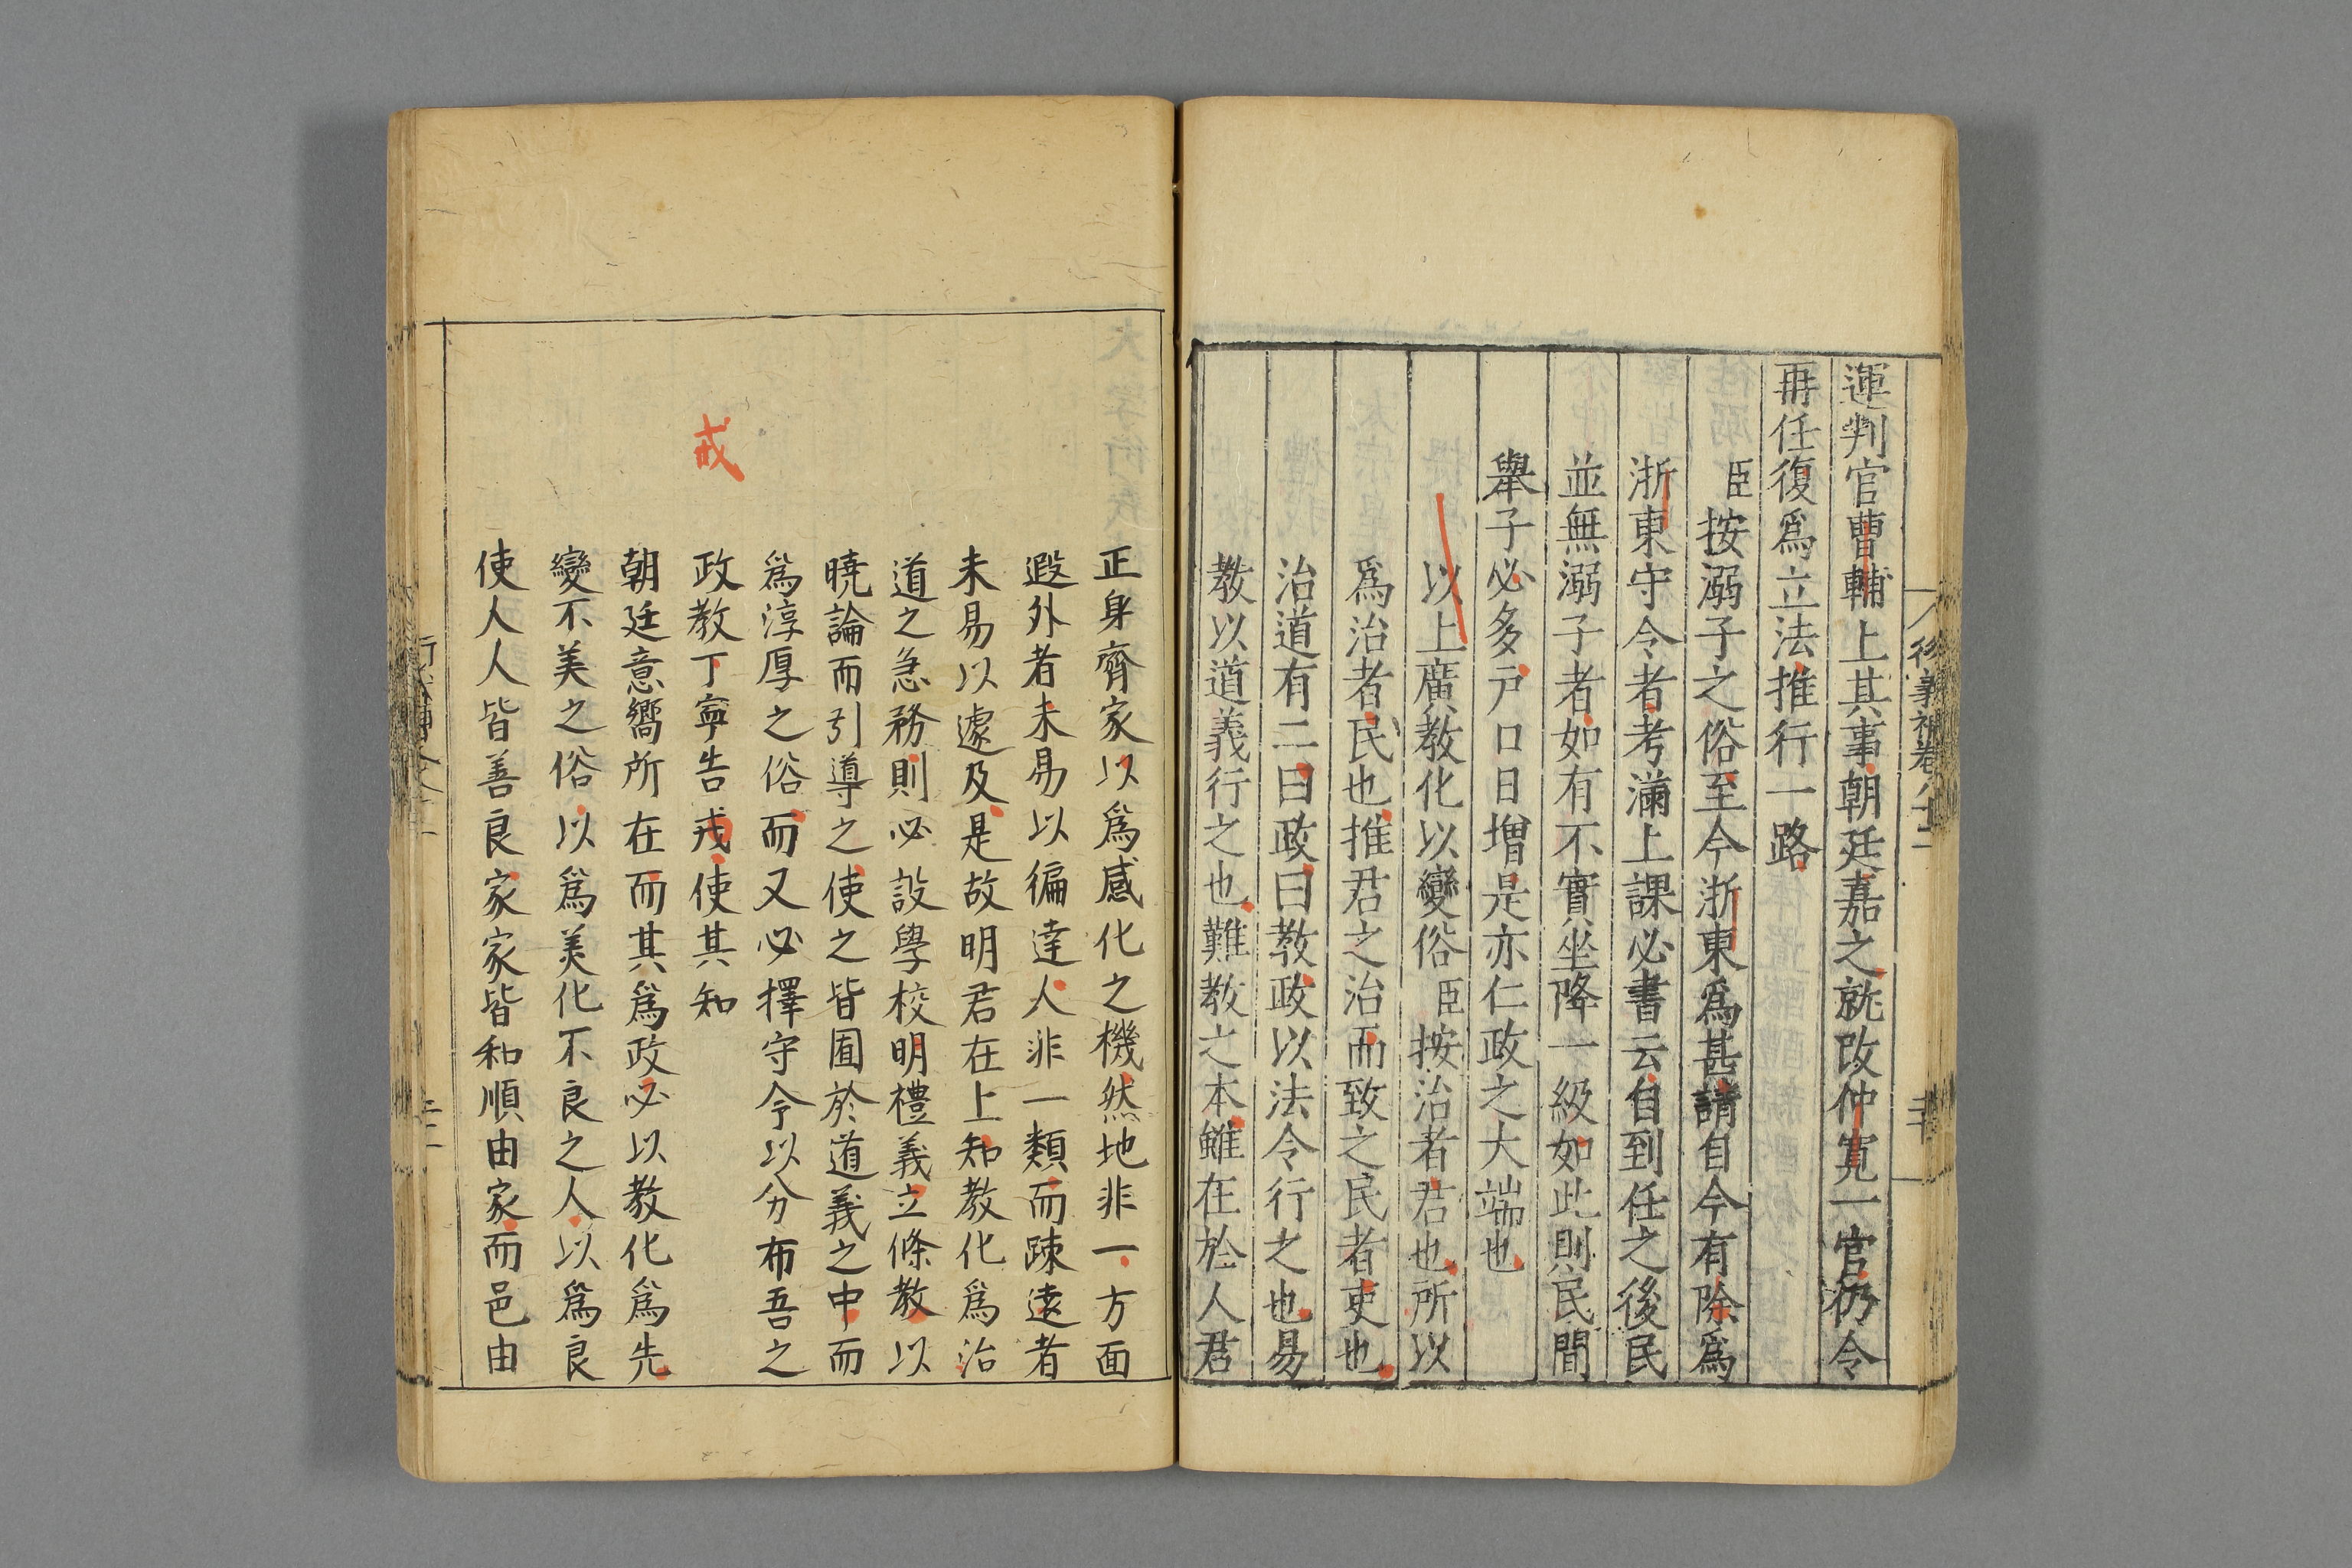 運判官曹輔上其事朝廷嘉之就改仲寬一官仍令
再任復爲立法推行一路
臣按溺子之俗至今浙東爲甚請自今有除爲
浙東守令者考滿上課必書云自到任之後民
並無溺子者如有不實坐降一級如此則民間
舉子必多戸口日增是亦仁政之大端也
以上廣教化以變俗臣按治者君也所以
爲治者民也推君之治而致之民者吏也
治道有二曰政曰教政以法令行之也易
教以道義行之也難教之本雖在於人君
正身齊家以爲感化之機然地非一方面
遐外者未易以徧達人非一類而踈遠者
未易以遽及是故明君在上知教化爲治
道之急務則必設學校明禮義立條教以
曉論而引導之使之皆囿於道義之中而
爲淳厚之俗而又必擇守令以分布吾之
政教丁寧告戎使其知
戒
朝廷意嚮所在而其爲政必以教化爲先
變不美之俗以爲美化不良之人以爲良
使人人皆善良家家皆和順由家而邑由